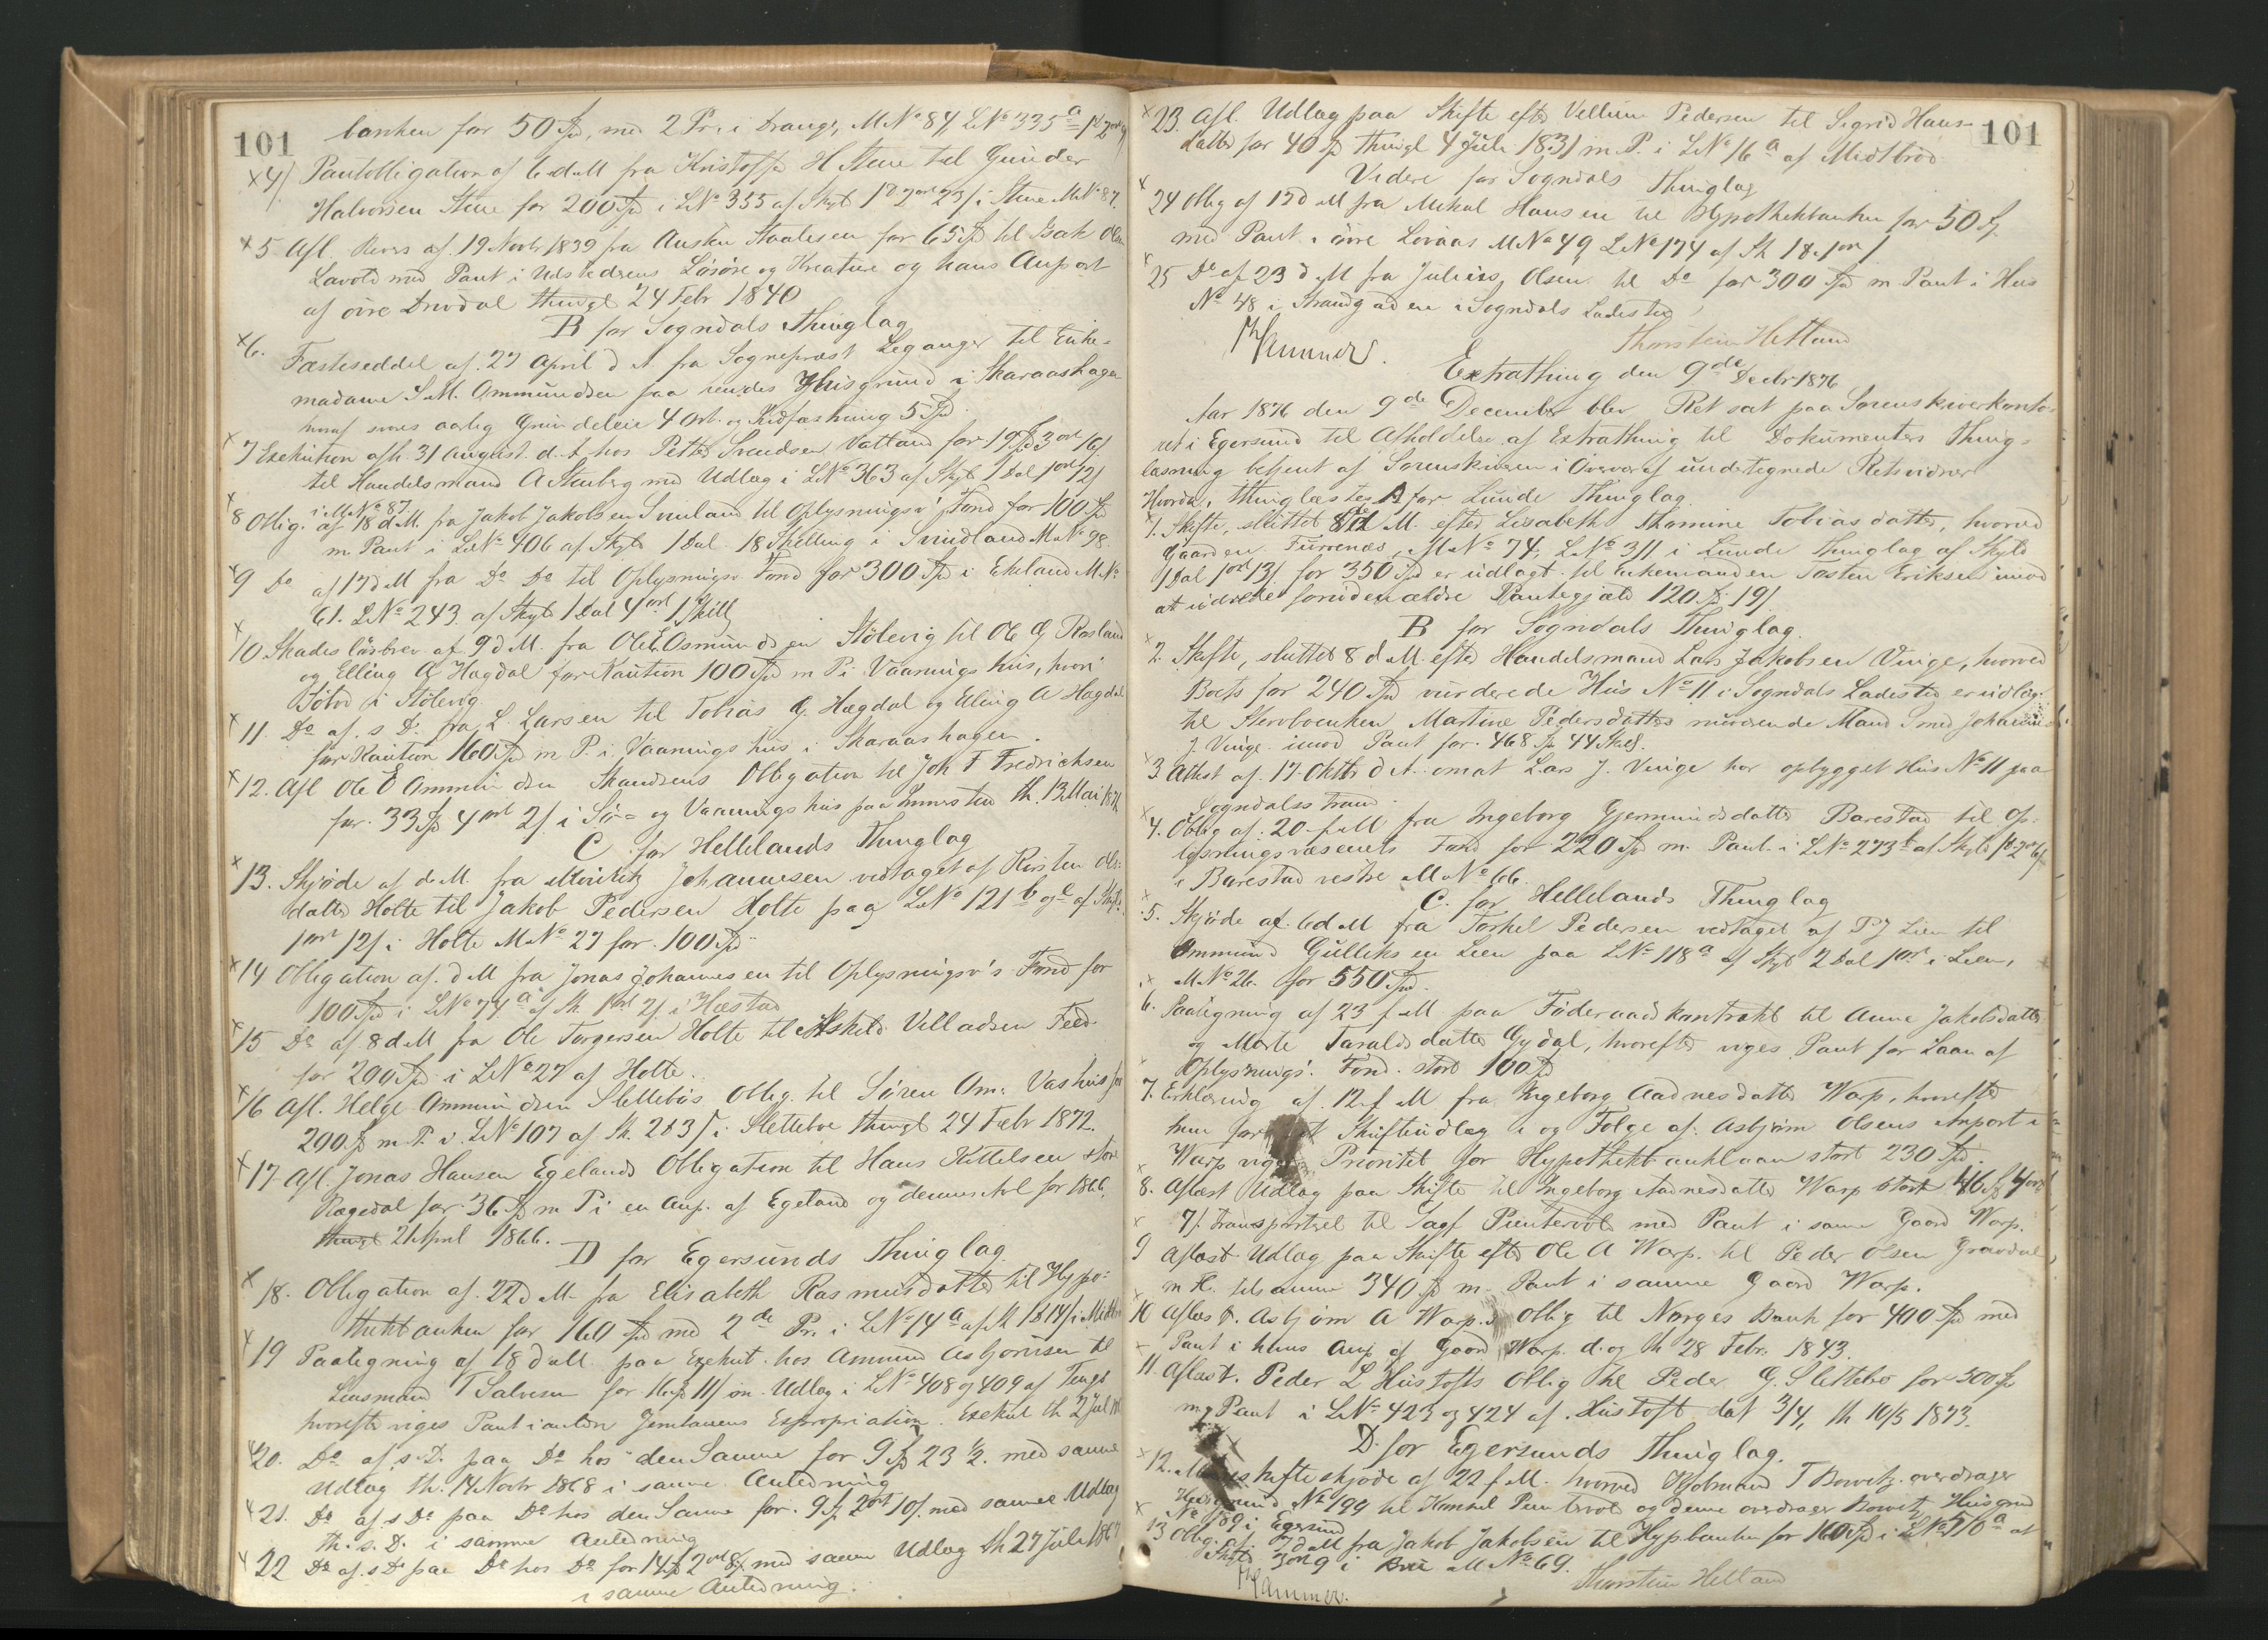 101
banken for 50 Spd, med 2 Pr. i Drangs, M No 84, L No 335a
x4/ Pantobligation af 6 d M fra Kristoffer H Steine til Gunder
Halvorsen Steine for 200 Spd i L No 335 af Skyld 1d 2ort 23/ i Steine M No 87.
x5 Afl. Revers af 19 Novbr 1839 fra Austen Staalesen for 65 Spd til Isak Olsen
Lavold med Pant i Udstederens Lösöre og Kreature og hans Anpart
af övre Drivdal thingl 24 Febr 1840
B for Sogndals Thinglag
x6. Fæsteseddel af 27 April d A fra Sogneprest Leganger til Enke-
madame S. M. Ommundsen paa hendes Husgrund i Skaraashagen
hvoraf svares aarlig Grundeleie 4 Ort. og Ridfæstning 5 Spd.
x7 Exekution afh. 31 August d. A. hos Petter Svendsen Vatland for 19 Spd 3 ort 16/
til Handelsmand A Stenberg med Udlæg i L No 363 af Skyld 1 Dal 1 ort 12/
i M No 87.
x8 Oblig. af 18 d M. fra Jakob Jakobsen Svindland til Oplysningsv's Fond for 100 Spd
m Pant i L No 406 af Skyld 1 Dal 18 Skilling i Svindland M No 98.
x9 Do af 17 d M fra Do Do til Oplysningsv Fond for 300 Spd i Ekeland M No
61. L No 243 af Skyld 1 Dal 4 ort 1 Skill
x10. Skadeslösbrev af 9 d M. fra Ole E Osmundsen Stölevig til Ole G Rosland
og Elling A Hagdal for Kaution 100 Spd m P i Vaaningshus, hvori
i Stölevig
x11. Do af s D. fra L. Larsen til Tobias G. Hægdal og Elling A Hægdal
for Kaution 160 Spd m P. i Vaaningshus i Skaraashagen.
x12. Afl Ole O Ommundsen Skandsens Obligation til Joh F Fredrichsen
for 33 Spd 4 ort 2/ i Sö- og Vaaningshus paa th. 13 Mai
C for Hellelands Thinglag
x13. Skjöde af d M. fra Moritz Johannesen vedtaget af Kirsten Ols-
datter Holte til Jakob Pedersen Holte paa L No 121 b og c af Skyld
1 ort 12/ i Holte M No 27 for 100 Spd
x14 Obligation af d M fra Jonas Johannesen til Oplysningsv's Fond for
100 Spd i L No 74a af Sk 1 ort 2/ i Hæstad
x15 Do af 8 d M fra Ole Torgersen Holte til Askild Villadsen Feed
for 200 Spd i L No 27 af Holte.
x16 Afl. Helge Ommundsen Slettebös Oblig. til Sören Om. Vashus for
200 Spd m P. i L No 107 af Sk. 2 d 3/ i Slettebö thingl 24 Febr 1872.
x17. Afl. Jonas Hansen Egelands Obligation til Hans Kittelsen Store
Rægedal for 36 Spd m P i en Anp. af Egeland og dennes Avl for 1866,
thingl 21 April 1866.
D for Egersunds Thinglag
x18. Obligation af 22 d M fra Elisabeth Rasmusdatter til Hypo-
thekbanken for 160 Spd med 2de Pr. i L No 14a af Sk 1 d 14/ i
x19 Paategning af 18 d M. paa Exekut. hos Ommund Asbjornsen til
Lensmand T Salvesen for 16 Spd 11/ m. Udlæg i L No 408 og 409 af Tengs
hvorefter viges Pant i anledn Jernbanens Expropriation. Exekut th 2 Juli
x20. Do af s. D. paa Do hos den Samme for 9 Spd 23 1/2. med samme
Udlæg th. 14 Novbr 1868 i samme Anledning
x21. Do af s Do paa Do hos den Samme for. 9 Spd 2 ort 10/. med samme Udlæg
th. s. D. i samme Anledning
x22 Do af s D paa Do hos Do for 14 Spd 2 ort 8/ med samme Udlæg th 27 Juli 1867
i samme Anledning.
101
x23. Afl. Udlæg paa Skifte efter Vellum Pedersen til Sigrid Hans-
datter for 40 Spd thingl 4 Juli 1831 m. P. i L No 16a af Midtbröd
Videre for Sogndals Thinglag
x24 Oblig af 17 d M fra Mikal Hansen til Hypothekbanken for 50 Spd.
med Pant i övre Lovaas M No 49, L No 174 af Sk 1 d. 1 ort 1
x25 Do af 23 d M fra Julius Olsen til Do for 300 Spd m Pant i Hus
No 48 i Strandgaden i Sogndals Ladested
Hammer. Thorstein Hetland
Extrathing den 9de Decbr 1876
Aar 1876 den 9de December blev Ret sat paa Sorenskriverkonto-
ret i Egersund til Afholdelse af Extrathing til Dokumenters Thing-
læsning betjent af Sorenskriveren i Overvær af undertegnede Retsvidner
Hvorda, thinglæstes A for Lunde Thinglag
x1. Skifte, sluttet 8 d M. efter Lisabeth Thomine Tobiasdatter, hvorved
Gaarden Furrenæs, M No 74, L No 311 i Lunde Thinglag af Skyld
1 Dal 1 ort 13/. for 350 Spd er udlagt til Enkemanden Tosten Eriksen imod
at udrede foruden ældre Pantegjæld 120 Spd 19/.
B for Sogndals Thinglag.
x2. Skifte, sluttet 8 d M. efter Handelsmand Lars Jakobsen Vinge, hvorved
Boets for 240 Spd vurderede Hus No 11 i Sogndals Ladested er udlagt
til Stervboenken Martine Pedersdatters nuværende Mand Smed Johannes
J. Vinge imod Pant for 468 Spd 44 Skill.
x3. Attest af 17 Oktbr d A. om at Lars J. Vinge har opbygget Hus No 11 paa
Sogndalsstrand.
x4. Oblig af 20 f M fra Ingeborg Gjermundsdatter Barestad til Op-
lysningsvæsenets Fond for 220 Spd m. Pant i L No 273b af Skyld
i Barestad vestre M No 66.
C. for Hellelands Thinglag
x5. Skjöde af 6 d M fra Torkel Pedersen vedtaget af P J Lien til
Ommund Gulleksen Leen paa L No 118a af Skyld 2 Dal 1 ort i Leen,
M No 26. for 550 Spd.
x6. Paategning af 23 f M paa Föderaadskontrakt til Anne Jakobsdatter
og Marte Taraldsdatter Gydal, hvorefter viges Pant for Laan af
Oplysnings'. Fond. stort 100 Spd
x7. Erklæring af 12 f M fra Ingeborg Aadnesdatter Warp, hvorefter
hun for Skifteudlæg i og Fölge af Asbjörn Olsens Anpart i
Warp viger Prioritet for Hypothekbanklaan stort 230 Spd.
x8. Aflæst Udlæg paa Skifte til Ingeborg Aadnesdatter Warp stort 46 Spd 4 ort
7/. transporteret til Sagf Puntervold med Pant i samme Gaard Warp.
x9 Aflæst Udlæg paa Skifte efter Ole A Warp til Peder Olsen Gravdal
m fl. tilsammen 340 Spd m. Pant i samme Gaard Warp.
x10 Aflæst. Asbjörn A Warps Oblig til Norges Bank for 400 Spd med
Pant i hans Anp af Gaard Warp. d. og th 28 Febr. 1843.
x11. Aflæst. Peder L Hustofts Oblig til Peder G. Slettebö for 300 Spd
m. Pant i L No 423 og 424 af Hustoft dat 3/4, th 10/5 1873.
D. for Egersunds Thinglag.
x12. Mageskifteskjöde af 22 f M. hvorved Kjöbmand T Bowitz overdrager
Husgrund No 199 til Puntervold og denne overdrager Bowitz Husgrund
No 189 i Egersund
x13 Oblig. af 7 d M fra Jakob Jakobsen til Hyp.banken for 160 Spd i L No 510a af
Skyld 3 ort 9 i Bue M No 69.
Hammer. Thorstein Hetland